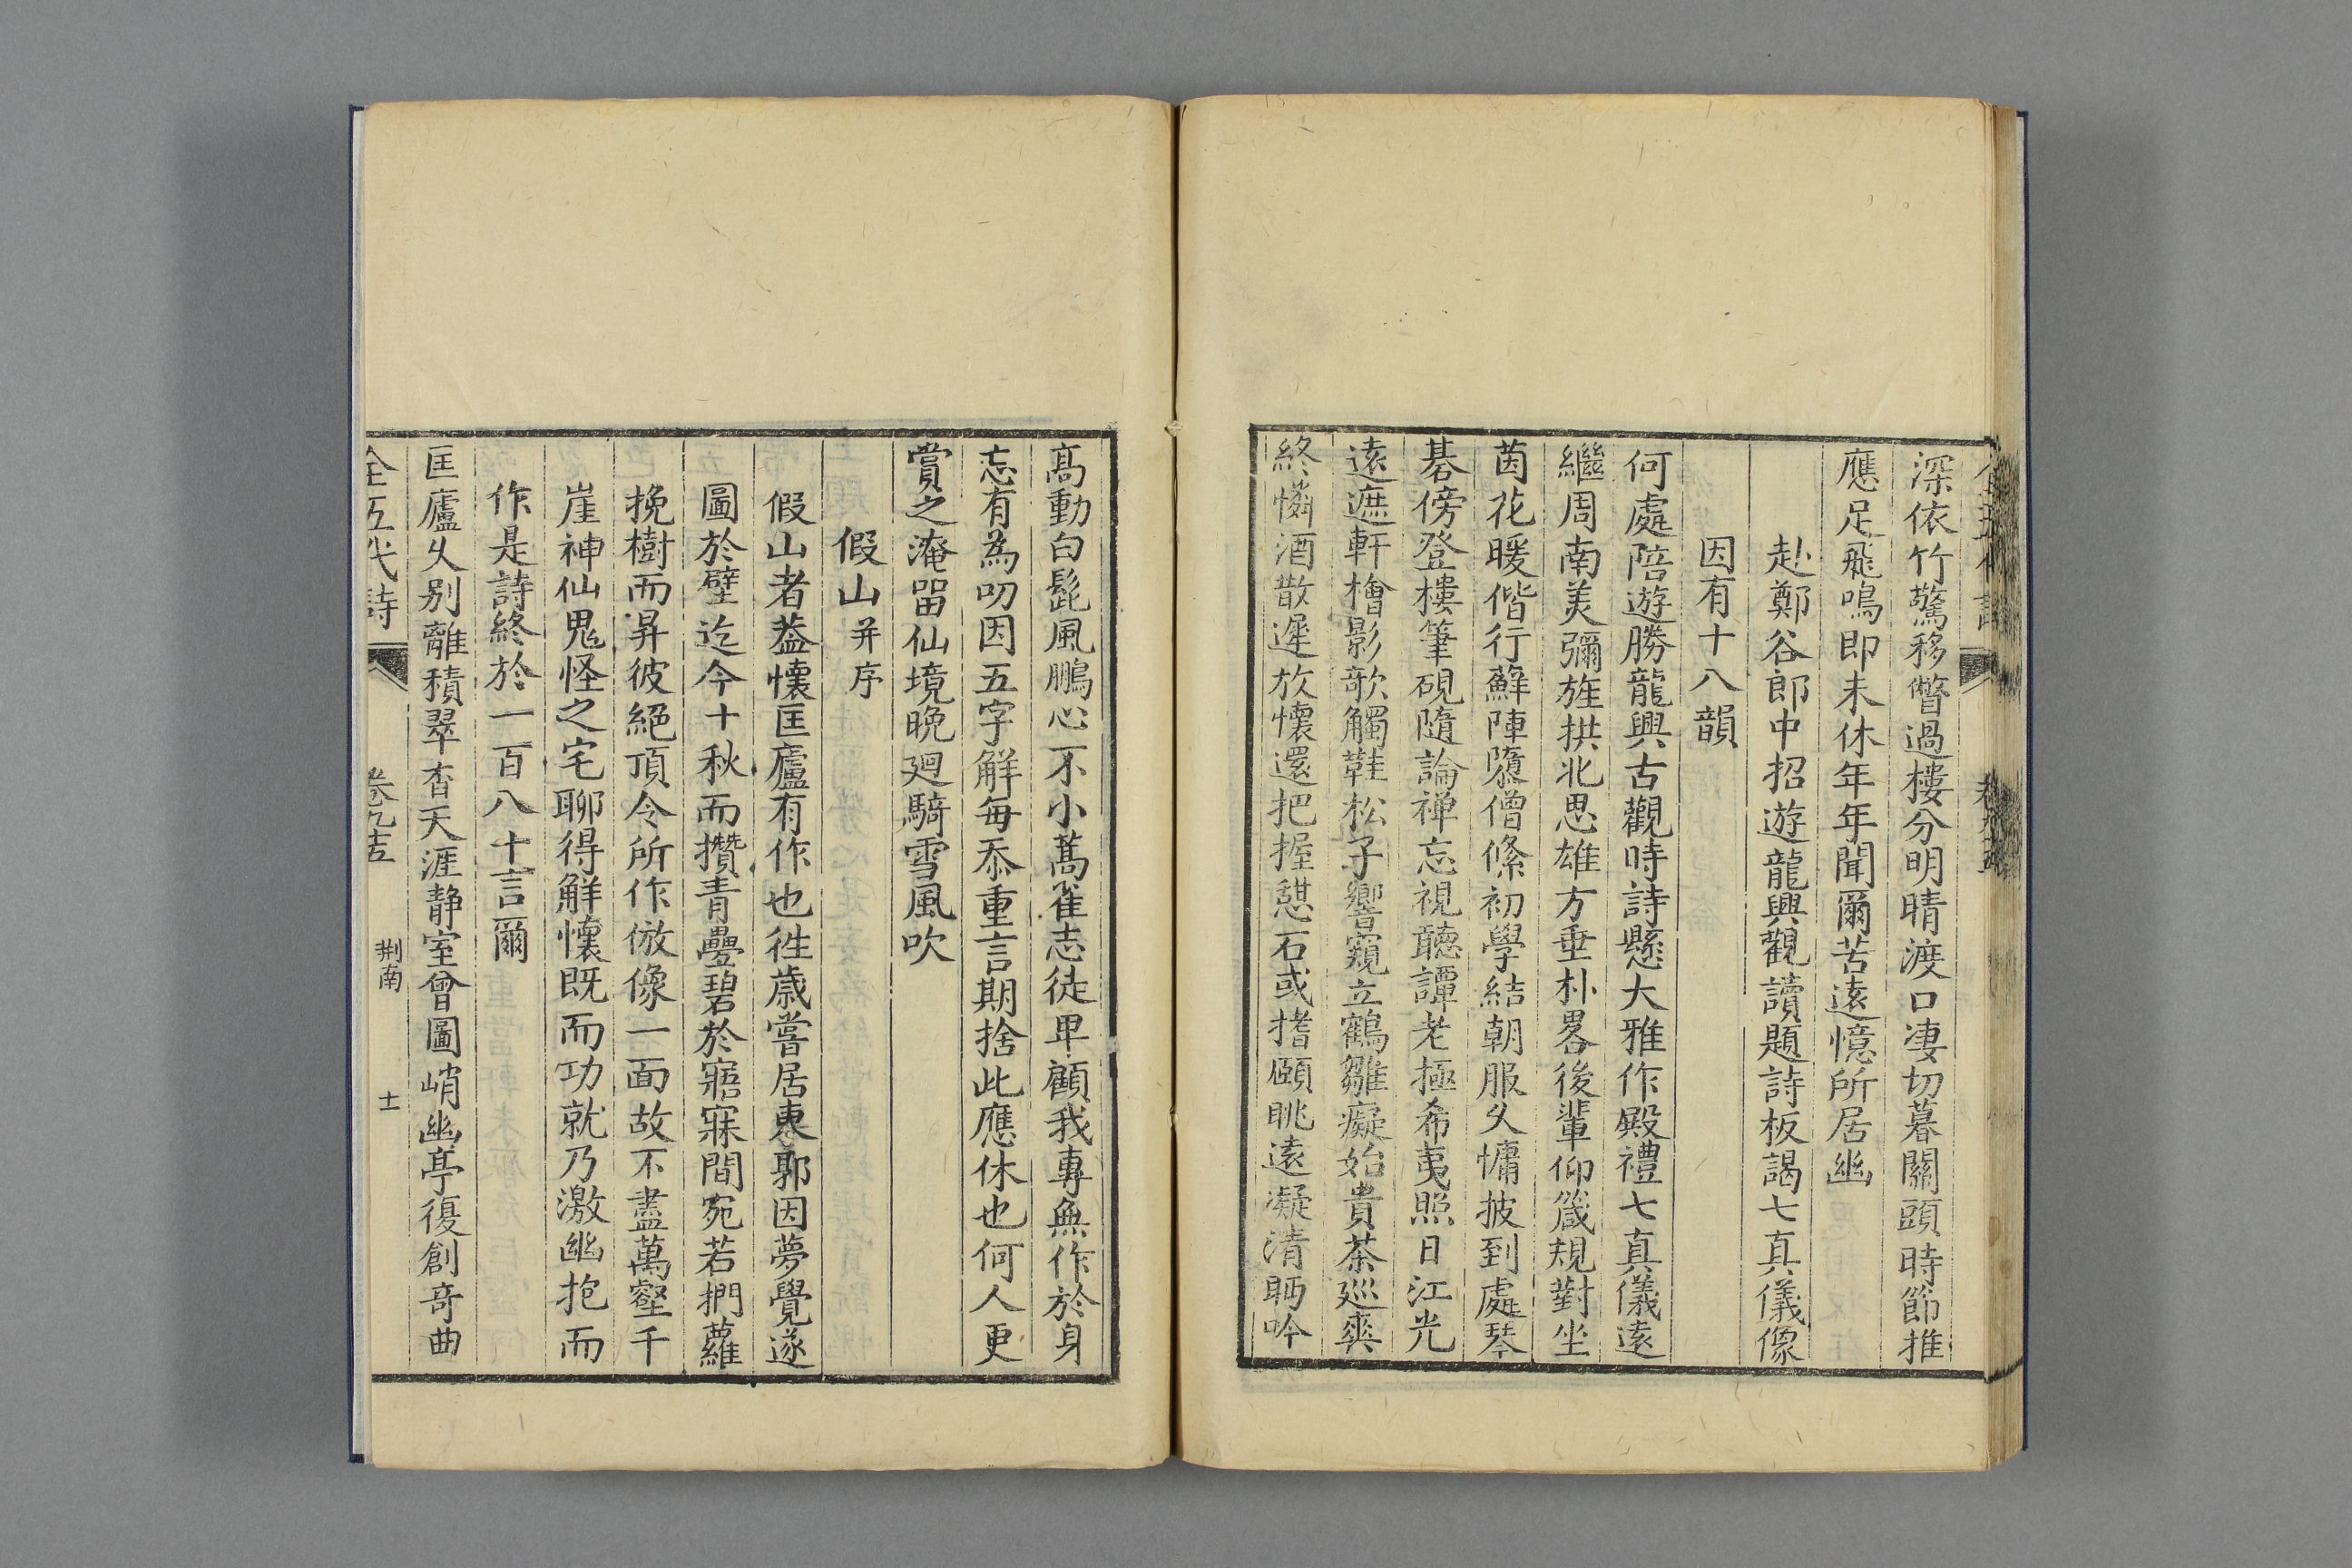 深依竹驚移瞥過樓分明晴渡口凄切暮關頭時節推
應足飛鳴即未休年年聞爾苦遠憶所居幽
赴鄭谷郎中招遊龍興觀讀題詩板謁七真儀像
因有十八韻
何處陪遊勝龍興古觀時詩懸大雅作殿禮七真儀遠
繼周南美彌旌拱北思雄方垂朴畧後輩仰箴規對坐
茵花暖偕行蘚陣隳僧絛初學結朝服久慵披到處琴
碁傍登樓筆硯隨論禅忘視聽譚老極希夷照日江光
遠遮軒檜影欹觸鞋松子響窺立鶴雛癡始貴茶巡爽
終憐酒散遲放懷還把握憇石或搘頤眺遠凝清眄吟
高動白髭風鵬心不小蒿雀志徒卑顧我專無作於身
忘有為叨因五字解每忝重言期捨此應休也何人更
賞之淹留仙境晚廻騎雪風吹
假山并序
假山者葢懷匡廬有作也徃歲嘗居東郭因夢覺遂
圖於壁迄今十秋而攢青疊碧於寤寐間宛若捫蘿
挽樹而昇彼絕頂今所作倣像一面故不盡萬壑千
崖神仙鬼怪之宅聊得解懷既而功就乃激幽抱而
作是詩終於一百八十言爾
匡廬久别離積翠杳天涯静室曾圖峭幽亭復創奇曲
全五代詩 卷九十五 荆南 十一